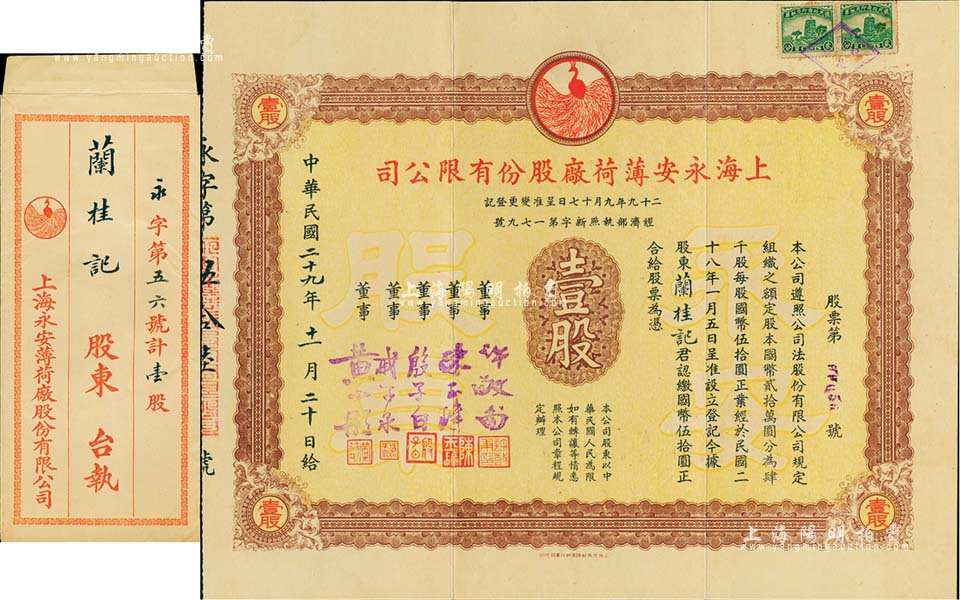 上海陽明拍賣
www.yangmingauction.com
永字第五六號計壹股
蘭桂記 股東 台執
上海永安薄荷廠股份有限公司
壹股
壹股
司公限有份股廠荷薄安永海上
記登更變准呈日七十月九年九十二
號九七一第字新照執部濟經
股票第
號
本公司遵照公司法股份有限公司規定
組織之額定股本國幣貳拾萬圓分為肆
千股每股國幣伍拾圓正業經於民國二
十八年一月五日呈准設立登記今據
股東蘭桂記君認繳國幣伍拾圓正
合給股票為憑
壹股
本公司股東以中
華民國人民為限
如有轉讓等情悉
照本公司章程規
定辦理
董事
董事
董事
董事
董事
中華民國二十九年十一月二十日給
永字第
號
股票
壹股
壹股
上海陽明拍賣
www.yangmingauction.com
上海陽明拍賣
www.yangmingauction.com